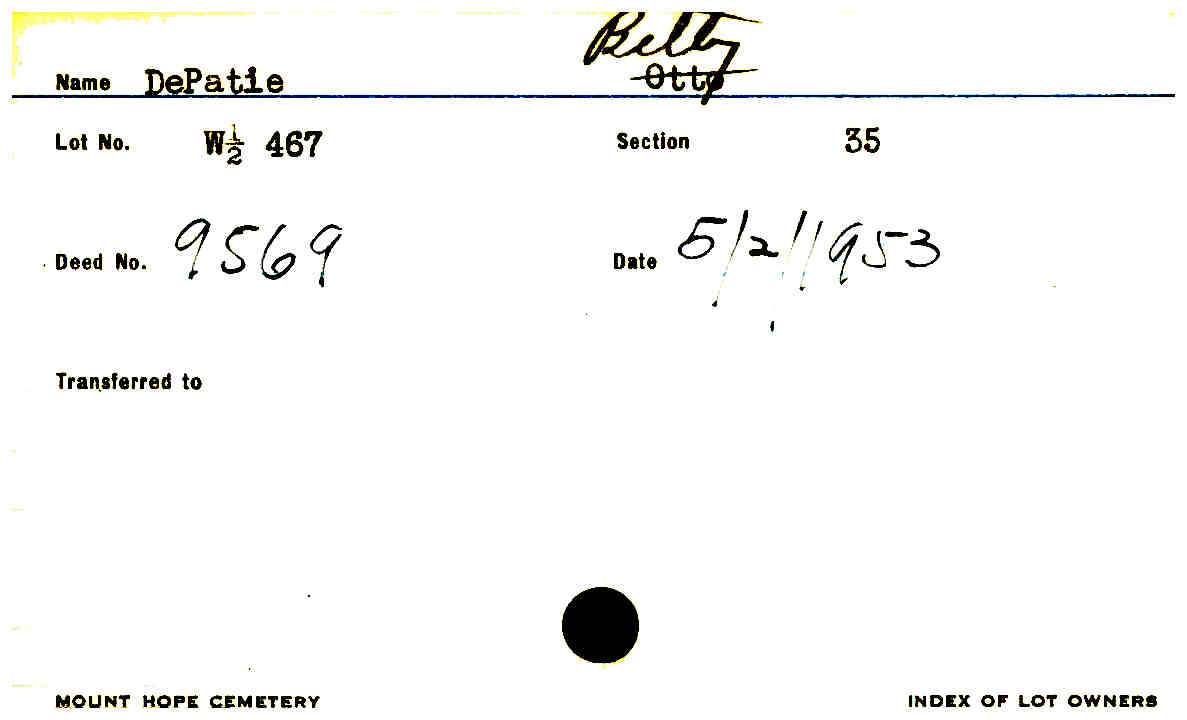 Betty
Name DePatie Otto
Lot No. W½ 467 Section 35
Deed No. 9569 Date 5/2/1953
Transferred to
MOUNT HOPE CEMETERY INDEX OF LOT OWNERS